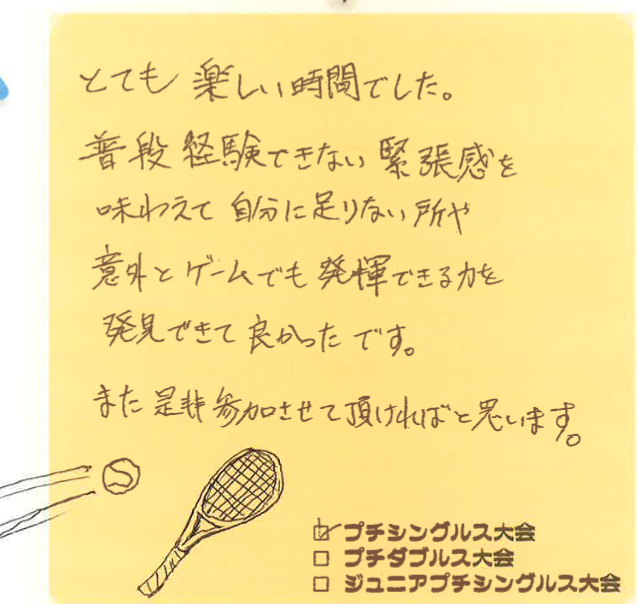 とても楽しい時間でした。
普段経験できない緊張感を
味わえて自分に足りない所や
意外とゲームでも発揮できる力を
発見できて良かったです。
また是非参加させて頂ければと思います。
☑ プチシングルス大会
□ プチダブルス大会
□ ジュニアプチシングルス大会